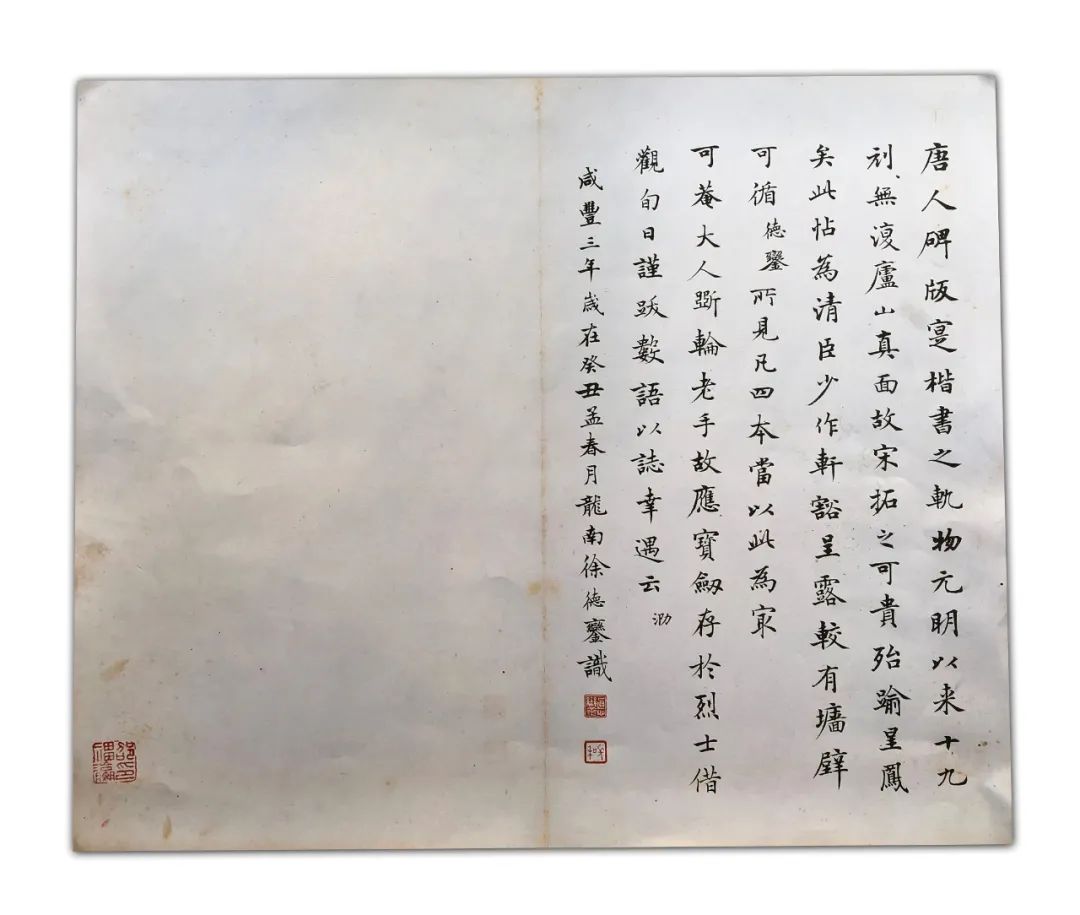 唐人碑版寔楷書之軌物元明以来十九
刓無復廬山真面故宋拓之可貴殆踰星鳳
矣此帖為清臣少作軒豁呈露較有墻壁
可循德鑾所見凡四本當以此為冣
可菴大人斲輪老手故應寶劔存於烈士借
觀旬日謹跋數語以誌幸遇云泐
咸豐三年歲在癸丑孟春月龍南徐德鑾識